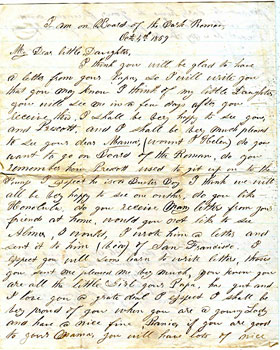 I am on Board of the Bark Roman,
Oct 4th 1859
My Dear little Daughter,
I think you will be glad to have
a letter from your Papa, so I will write you
that you may know I think of my little Daughter
you will see me in a few days after you
receive this, I shall be very happy to see you,
and Prescott, and I shall be very much pleased
to see your dear Mama, (wount I Helen) do you
want to go on Board of the Roman, do you
remember how Prescott used to get up on to the
I expect he is a Buster Boy I think we will
all be very happy to see on other, do you like
Honolulu, do you receive letters from your
friends at home, would you not like to see
I would, I wrote him a letter and
sent it to him of San Francisco I
expect you will soon learn to write letters, those
you sent me pleased me very much, you know you
are all the little Girl your Papa, has got and
I love you a grate deal I expect I shall be
very proud of you when you are a young Lady
and have a nice fine Piano, if you are good
to your Mama, you will have lots of nice